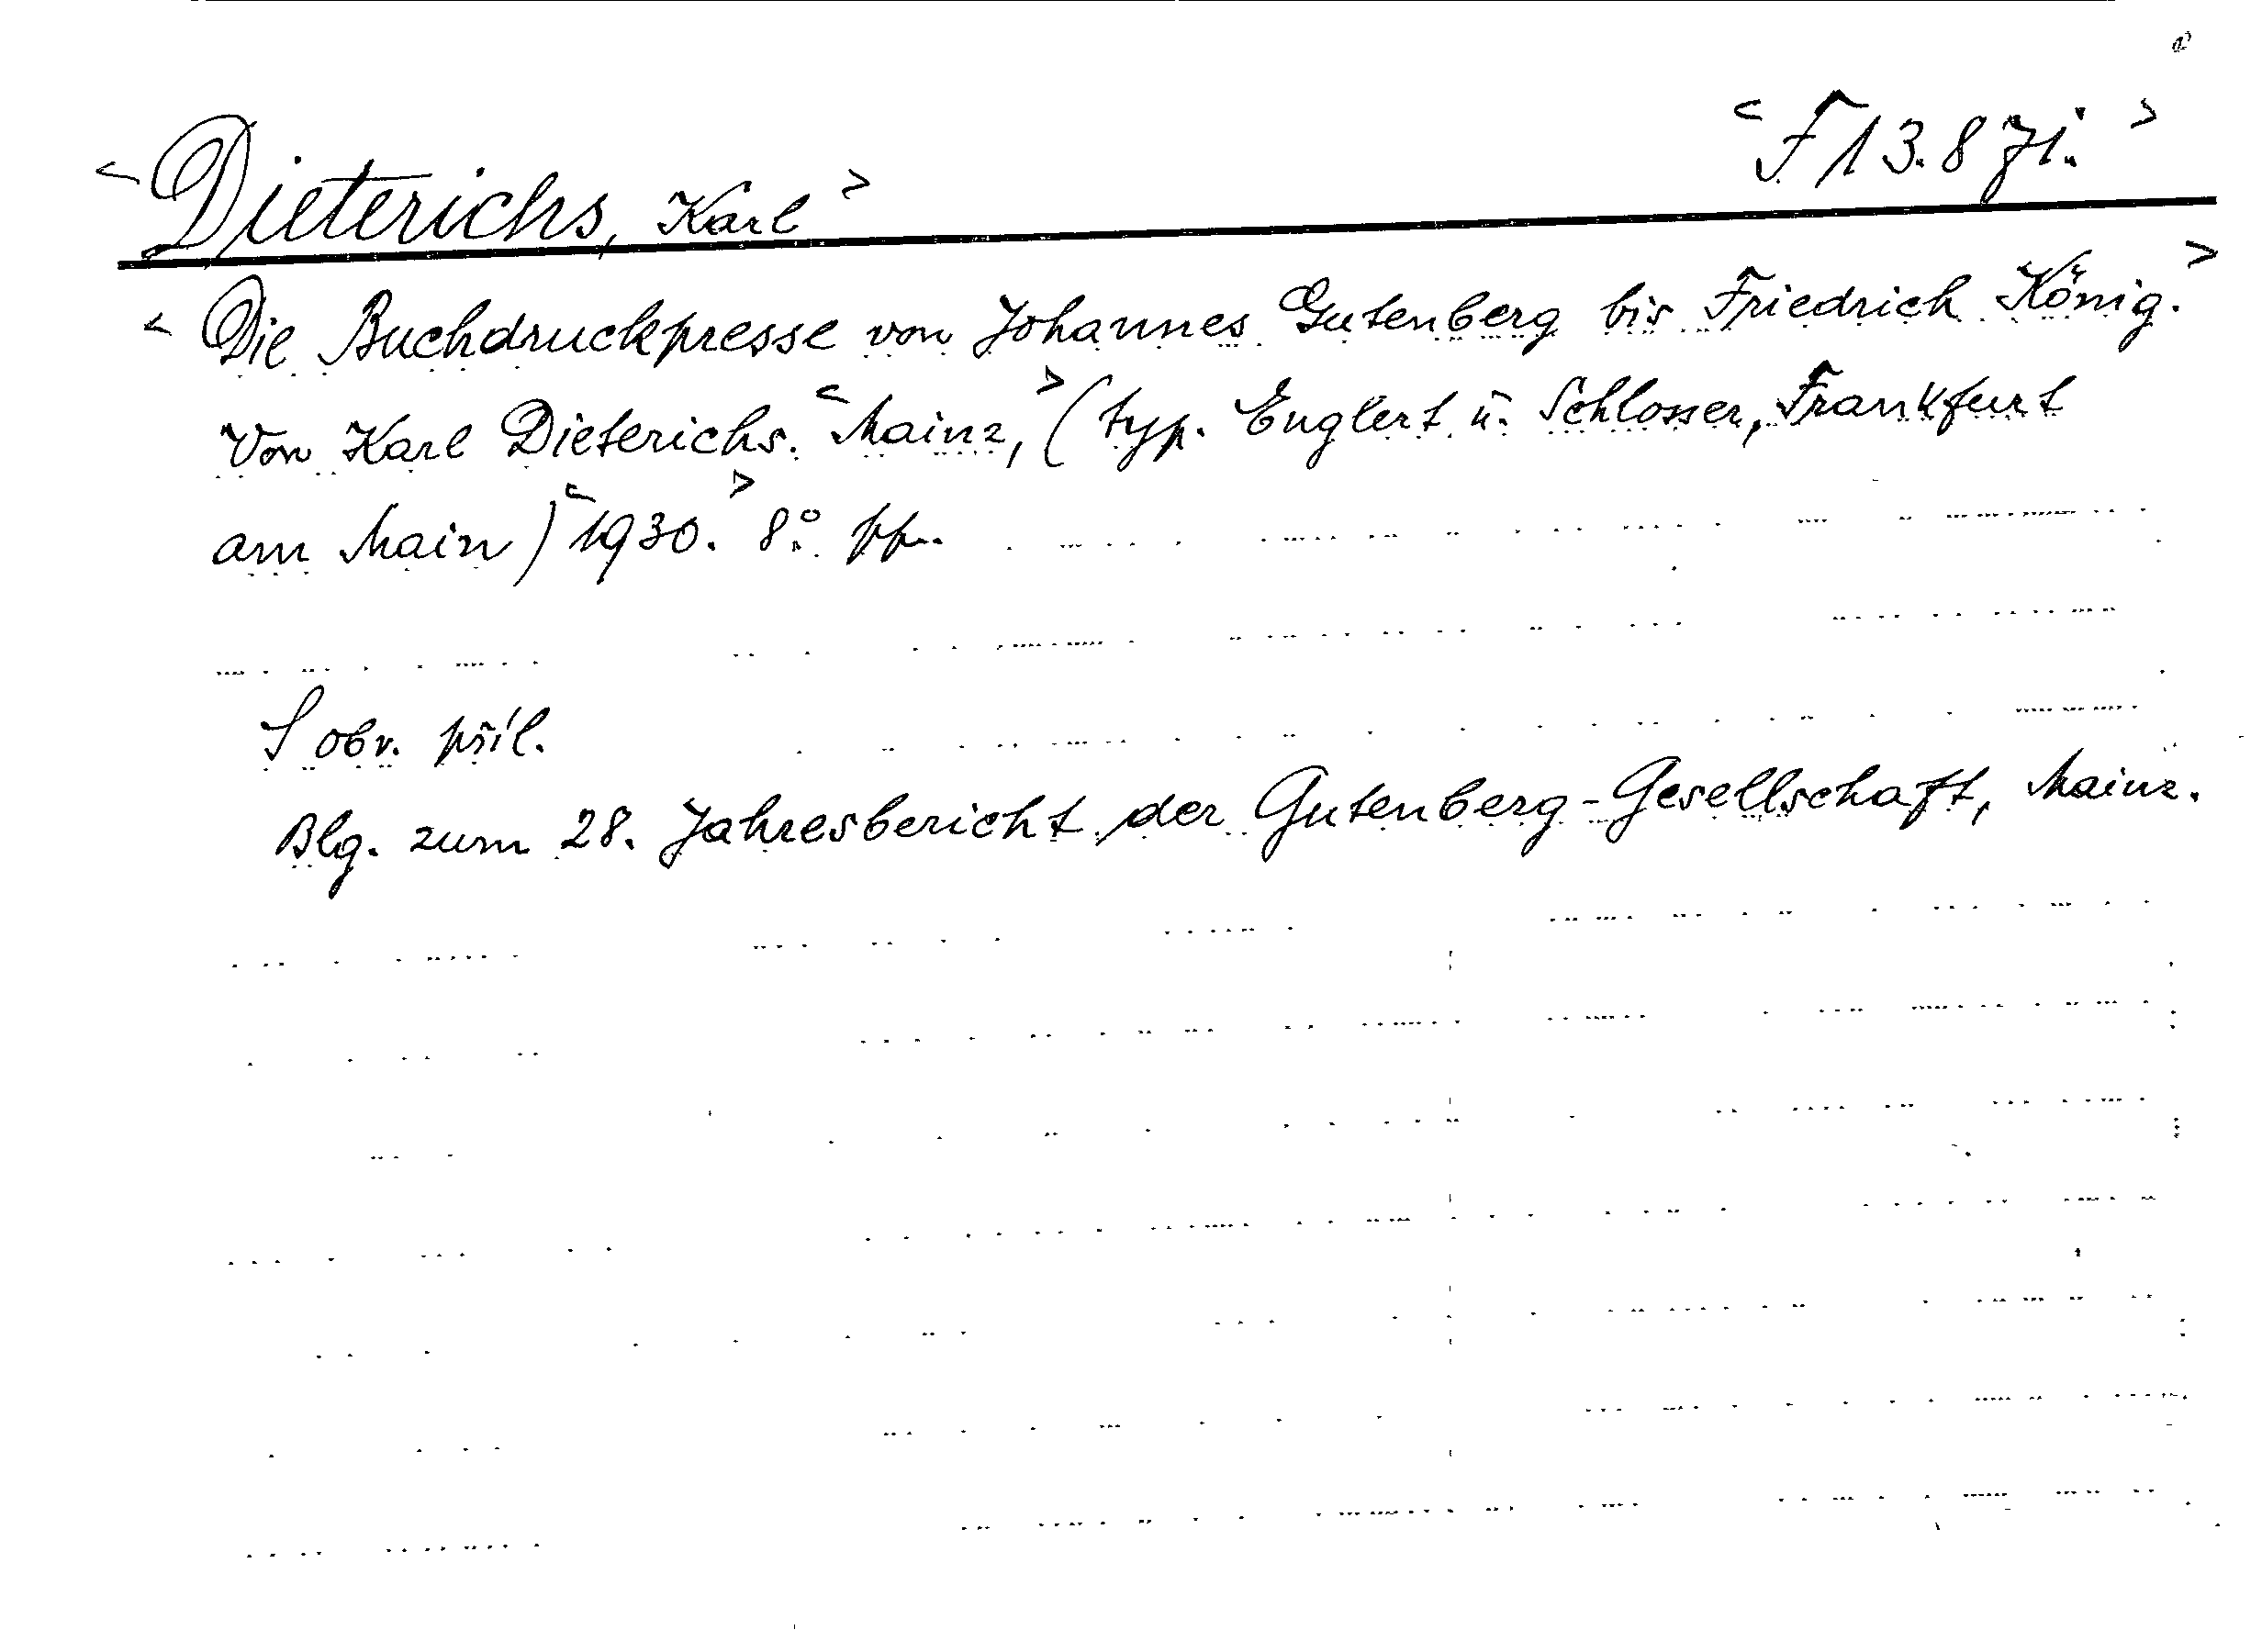 <Dieterichs, Karl>
<F 13.871.>
<Die Buchdruckpresse von Johannes Gutenberg bis Friedrich König.>
Von Karl Dieterichs. <Mainz,> (typ. Englert u. Schlosser, Frankfurt
am Main) <1930.> 8°.
S obr. příl.
Blg. zum 28. Jahresbericht der Gutenberg-Gesellschaft, Mainz.